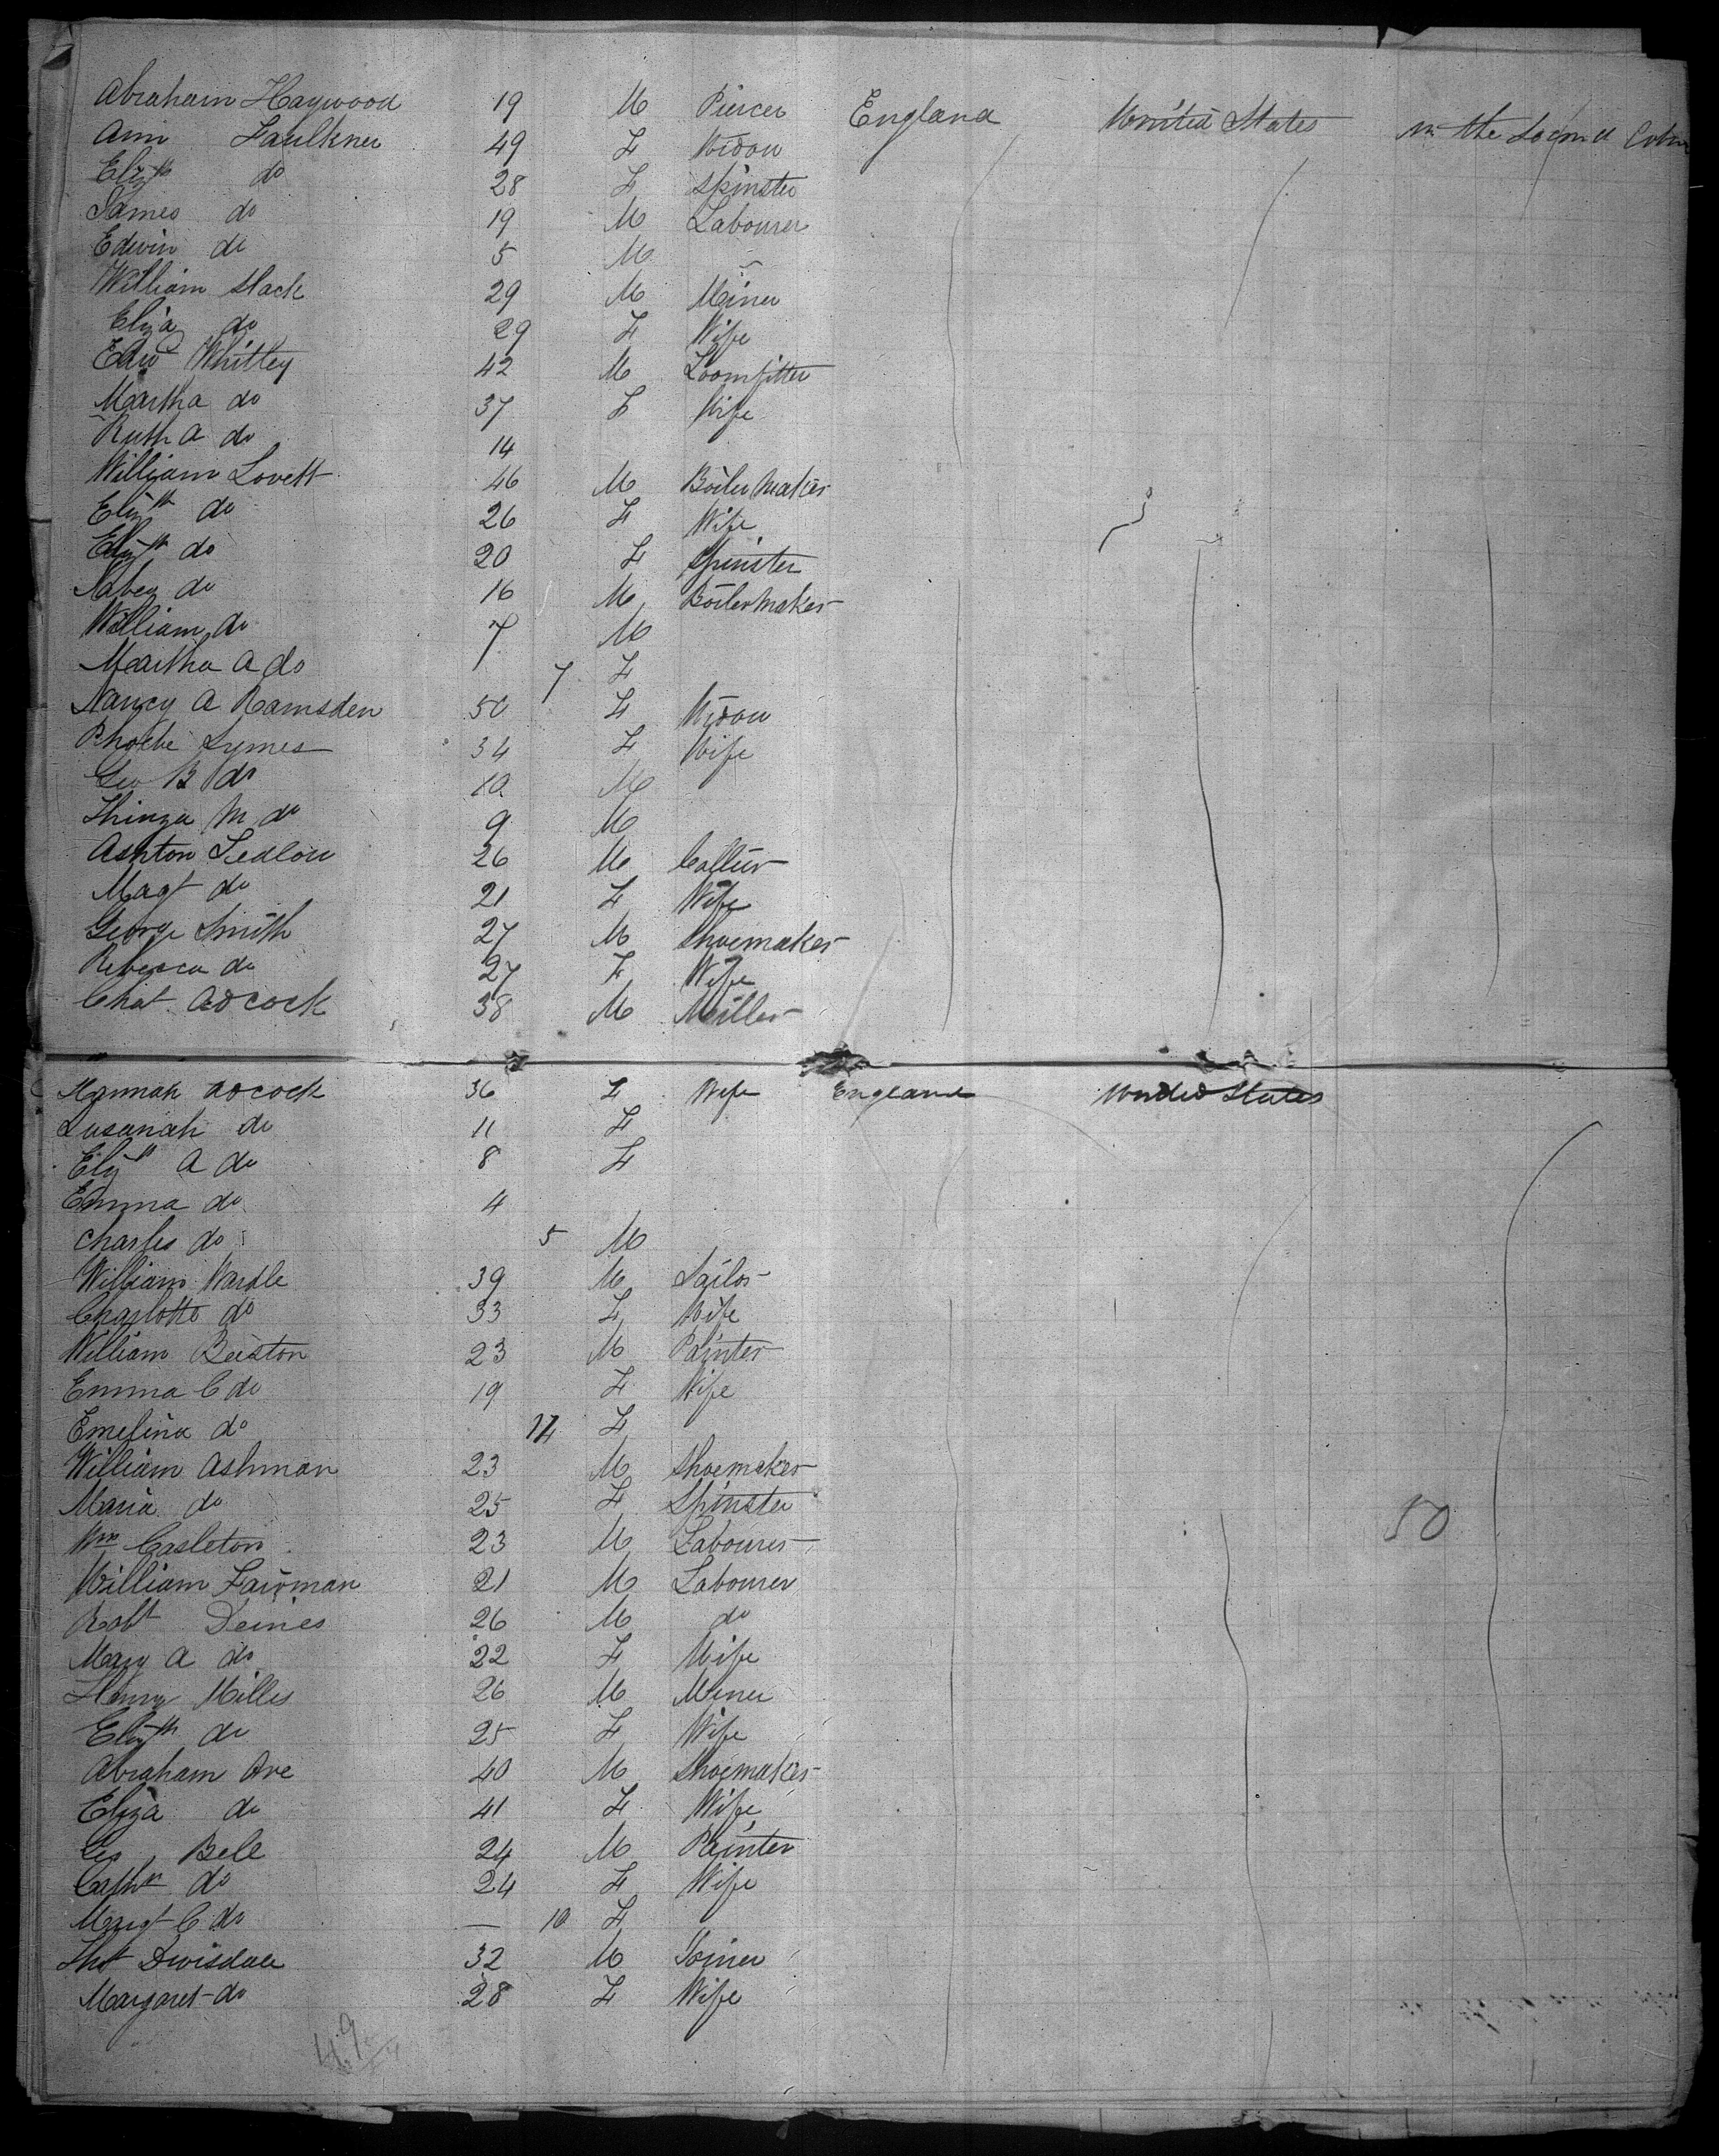 Abraham Haywood 19 M Piercer England United States in the Second Cabin
Ann Faulkner 49 F Widow
Elizth do 28 F Spinster
James do 19 M Labourer
Edwin do 5 M
William Slack 29 M Miner
Eliza do 29 F Wife
Edw Whitley 42 M Loomfitter
Martha do 37 F Wife
Ruth A do 14
William Lovett 46 M Boiler Maker
Elizth do 26 F Wife
Elizth do 20 F Spinster
do 16 M Boilermaker
William do 7 M
Martha A do 7 F
Nancy A Ramsden 50 F Widow
Phoebe Symes 34 F Wife
Geo B do 10 M
Thinza M do 9 M
Ashton Sedlow 26 M Collier
Magt do 21 F Wife
George Smith 27 M Shoemaker
Rebecca do 27 F Wife
Chat Adcock 38 M Miller
Hannah Adcock 36 F Wife England United States
Susanah do 11 F
Elizth A do 8 F
Emma do 4
Charles do 5 M
William Wardle 39 M Sailor
Charlotte do 33 F Wife
William Beeston 23 M Painter
Emma C do 19 F Wife
Emelina do F
William Ashman 23 M Shoemaker
Maria do 25 F Spinster
Wm Casleton 23 M Labourer 50
William Fairman 21 M Labourer
Robt Deines 26 M do
Mary A do 22 F Wife
Henry Milles 26 M Miner
Elizth do 25 F Wife
Abraham Ave 40 M Shoemaker
Eliza do 41 F Wife
Geo Bell 24 M Painter
Cathn do 24 F Wife
Margt C do — 10 F
Thos Dwisdale 32 M Joiner
Margaret do 28 F Wife
49